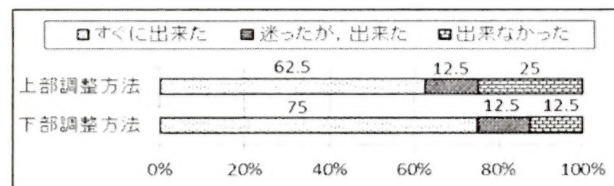 すぐに出来た 迷ったが, 出来た 出来なかった
62.5 12.5 25
上部調整方法
75 12.5 12.5
下部調整方法
0% 20% 40% 60% 80% 100%